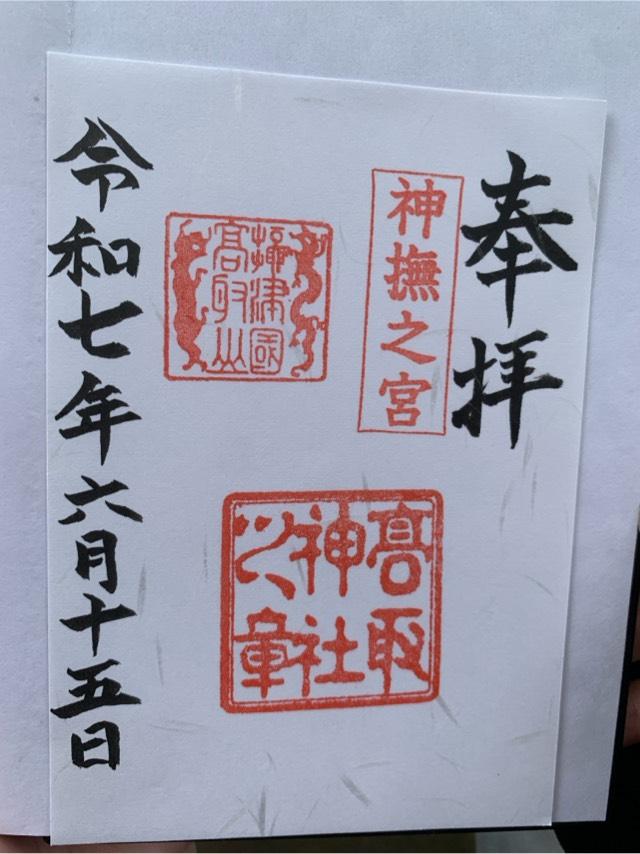 奉拝
神撫之宮
攝津國
高取山
高取
神社
之章
令和七年六月十五日